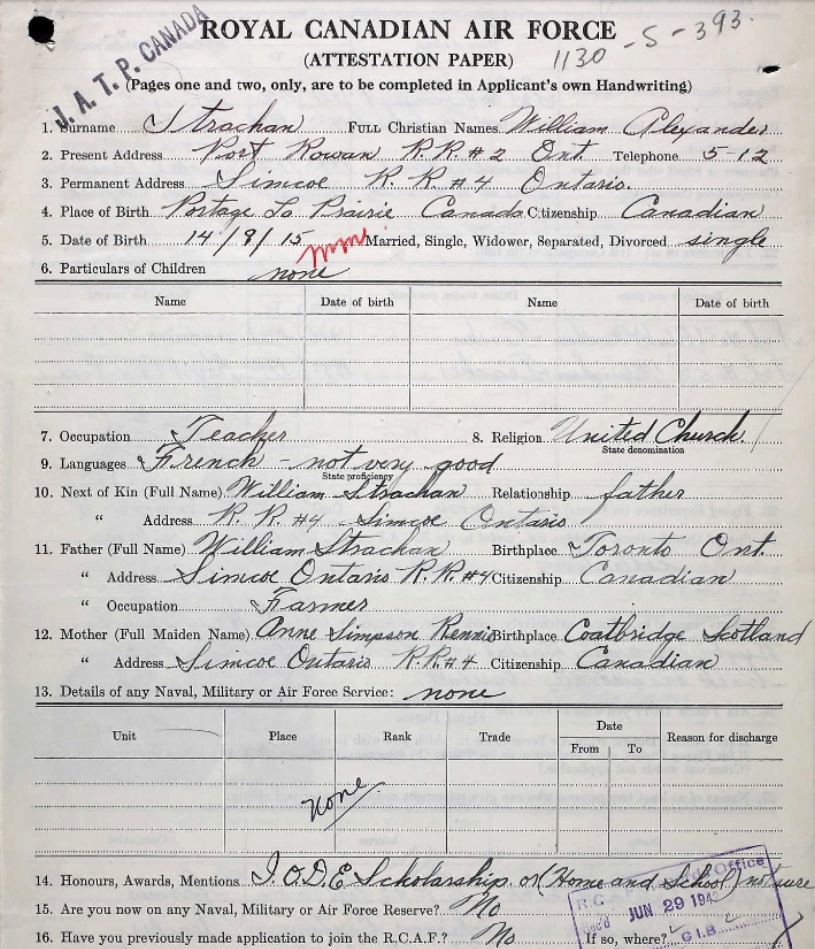 J. A. T. P. CANADA
ROYAL CANADIAN AIR FORCE
(ATTESTATION PAPER)
1130-S-393.
(Pages one and two, only, are to be completed in Applicant's own Handwriting)
1. Surname Strachan FULL Christian Names William Alexander
2. Present Address Port Rowan R.R. #2 Ont. Telephone 5-12
3. Permanent Address Simcoe R.R. #4 Ontario.
4. Place of Birth Portage La Prairie Canada Citizenship Canadian
5. Date of Birth 14/9/15 Married, Single, Widower, Separated, Divorced single
6. Particulars of Children none
Name Date of birth Name Date of birth
7. Occupation Teacher 8. Religion United Church.
State denomination
9. Languages French - not very good
State proficiency
10. Next of Kin (Full Name) William Strachan Relationship father
" Address R.R. #4 Simcoe Ontario
11. Father (Full Name) William Strachan Birthplace Toronto Ont.
" Address Simcoe Ontario R.R. #4 Citizenship Canadian
" Occupation Farmer
12. Mother (Full Maiden Name) Anne Simpson Rennie Birthplace Coatbridge Scotland
" Address Simcoe Ontario R.R. #4 Citizenship Canadian
13. Details of any Naval, Military or Air Force Service: none
Unit Place Rank Trade Date Reason for discharge
From To
None
14. Honours, Awards, Mentions I.O.D.E Scholarship or (Home and School) not sure
15. Are you now on any Naval, Military or Air Force Reserve? No
JUN 29 194
16. Have you previously made application to join the R.C.A.F.? No If so, where?